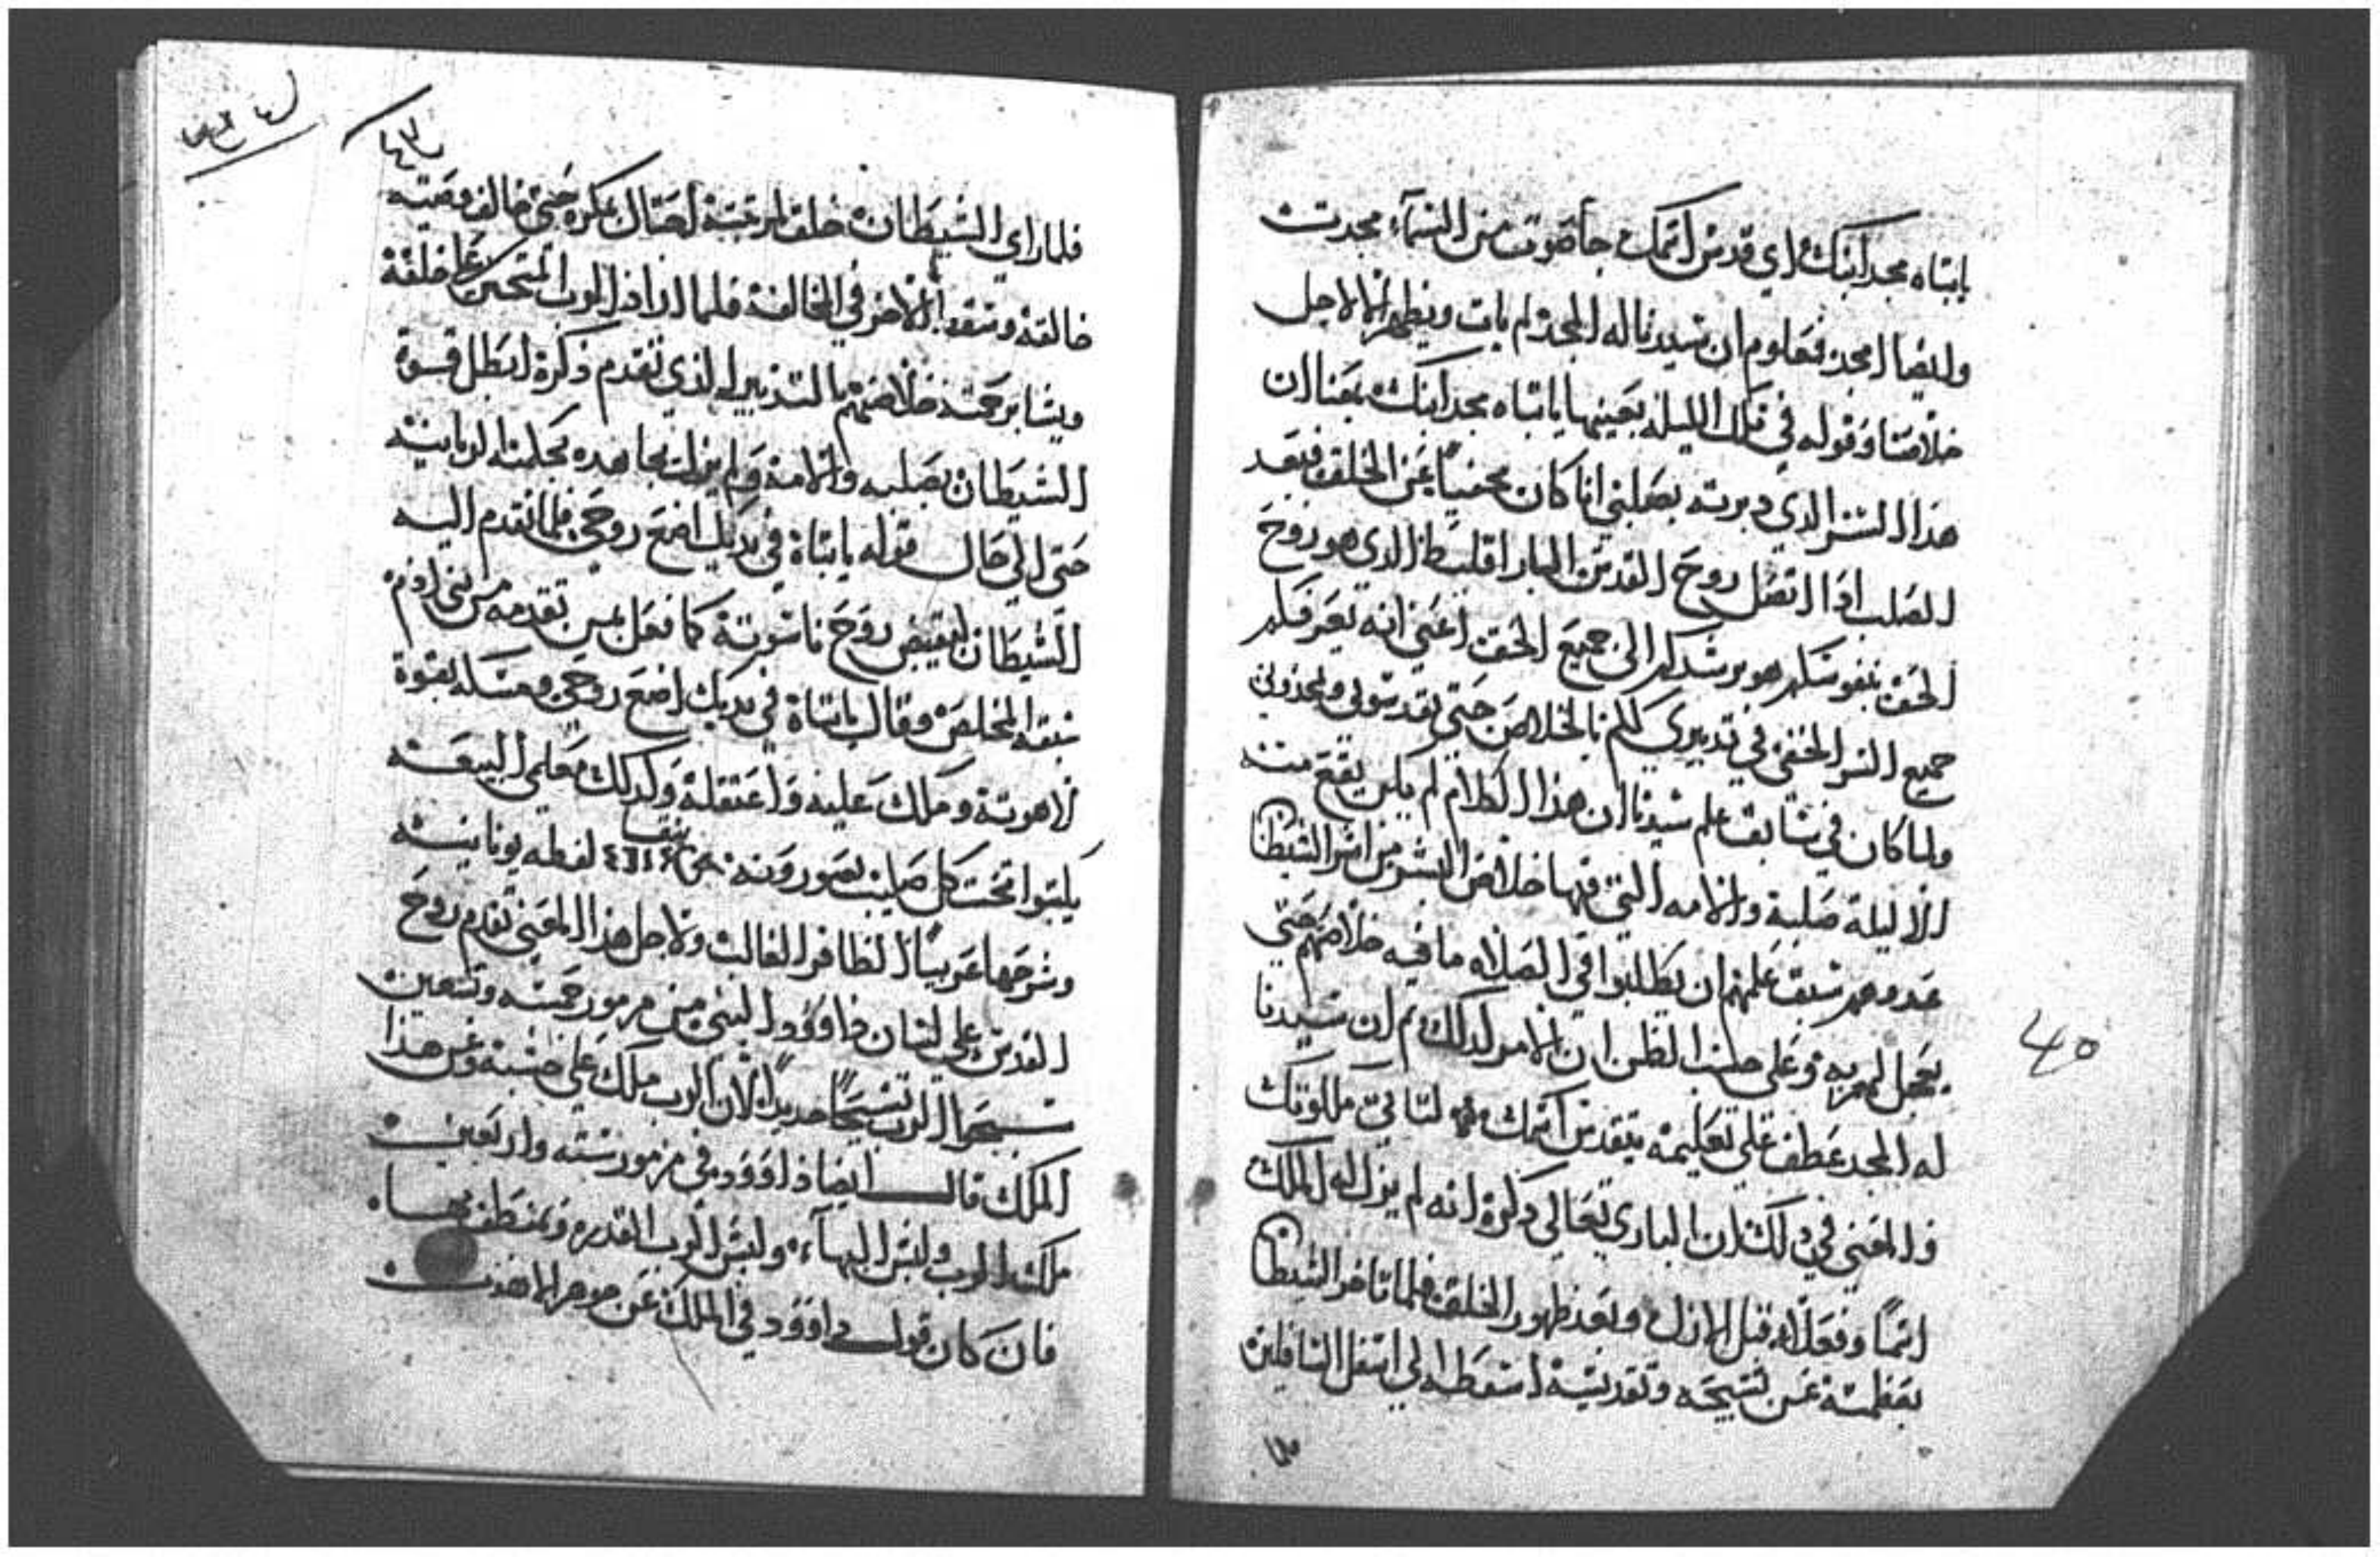 ياابتاه مجد ابنك اي قدس اسمك جا صوت من السمآء مجدت
وايضا امجد فمعلوم ان سيدنا له المجد لم يات ويظهر الا لاجل
خلاصنا وقوله في تلك الليله بعينها ياابتاه مجد ابنك بمعنا ان
هدا السر الدي دبرته بصلبي انا كان مخفياً عن الخلق فبعد
الصلب اذا اتصل روح القدس البارقليط الدي هو روح
الحق بنفوسكم هو يرشدكم الى جميع الحق اعني انه يعرفكم
جميع السر الخفي في تدبيري لكم بالخلاص حتي تقدسوني وتمجدوني
ولما كان في سابق علم سيدنا ان هذا الكلام لم يكن يقع منه
الا ليلة صلبه والامه التي فيها خلاص البشر من اسر الشيطان
عدوهم سبق علمهم ان يطلبوا في الصلاه ما فيه خلاصهم حتي
يعجل لهم به وعلى حسب الظن ان الامر كدلك ثم ان سيدنا
له المجد عطف على تعليمه بتقدس اسمك لتاتي ملكوتك
والمعني في دلك ان الباري تعالي دكره انه لم يزل له الملك
اسماً وفعلاً قبل الازل وبعد ظهور الخلق فلما تاخر الشيطان
بعظمته عن تسبيحه وتقديسه اسقطه الي اسفل السافلين
40
فلما راي الشيطان خلق مرتبته احتال بمكره حتي خالف وصيته
خالقه وسقط الاخر في المخالفة فلما اراد الرب المتحنن على خلقة
ويشا برحمته خلاصهم بالتدبير الذي تقدم ذكرة ابطل قوة
الشيطان بصلبه والامه ولم يزل يجاهده بحكمته الربانيه
حتى الي حال قوله ياابتاة في يديك اضع روحي فلما تقدم اليه
الشيطان ليقبض روح ناسوته كما فعل بمن تقدمه من بني ادم
سبقه المخلص وقال ياابتاة في يديك اضع روحي ومسكه بقوة
لاهوته وملك عليه واعتقله وكدلك معلمي البيعه
يكتبوا تحت كل صليب يصورونه لفظه يونانيه
وشرحها عربياً الظافر الغالب ولاجل هذا المعني تقدم روح
القدس علي لسان داوود النبي من مزمور خمسه وتسعين
سبحوا الرب تسبيحاً جديداً لان الرب ملك على خشبه وعن هذا
الملك قال ايضا داوود في مزمور سته واربعين
ملك الرب ولبس البهآء ولبس الرب القدره وتمنطق بها
فان كان قول داوود في الملك عن جوهر اللاهوت